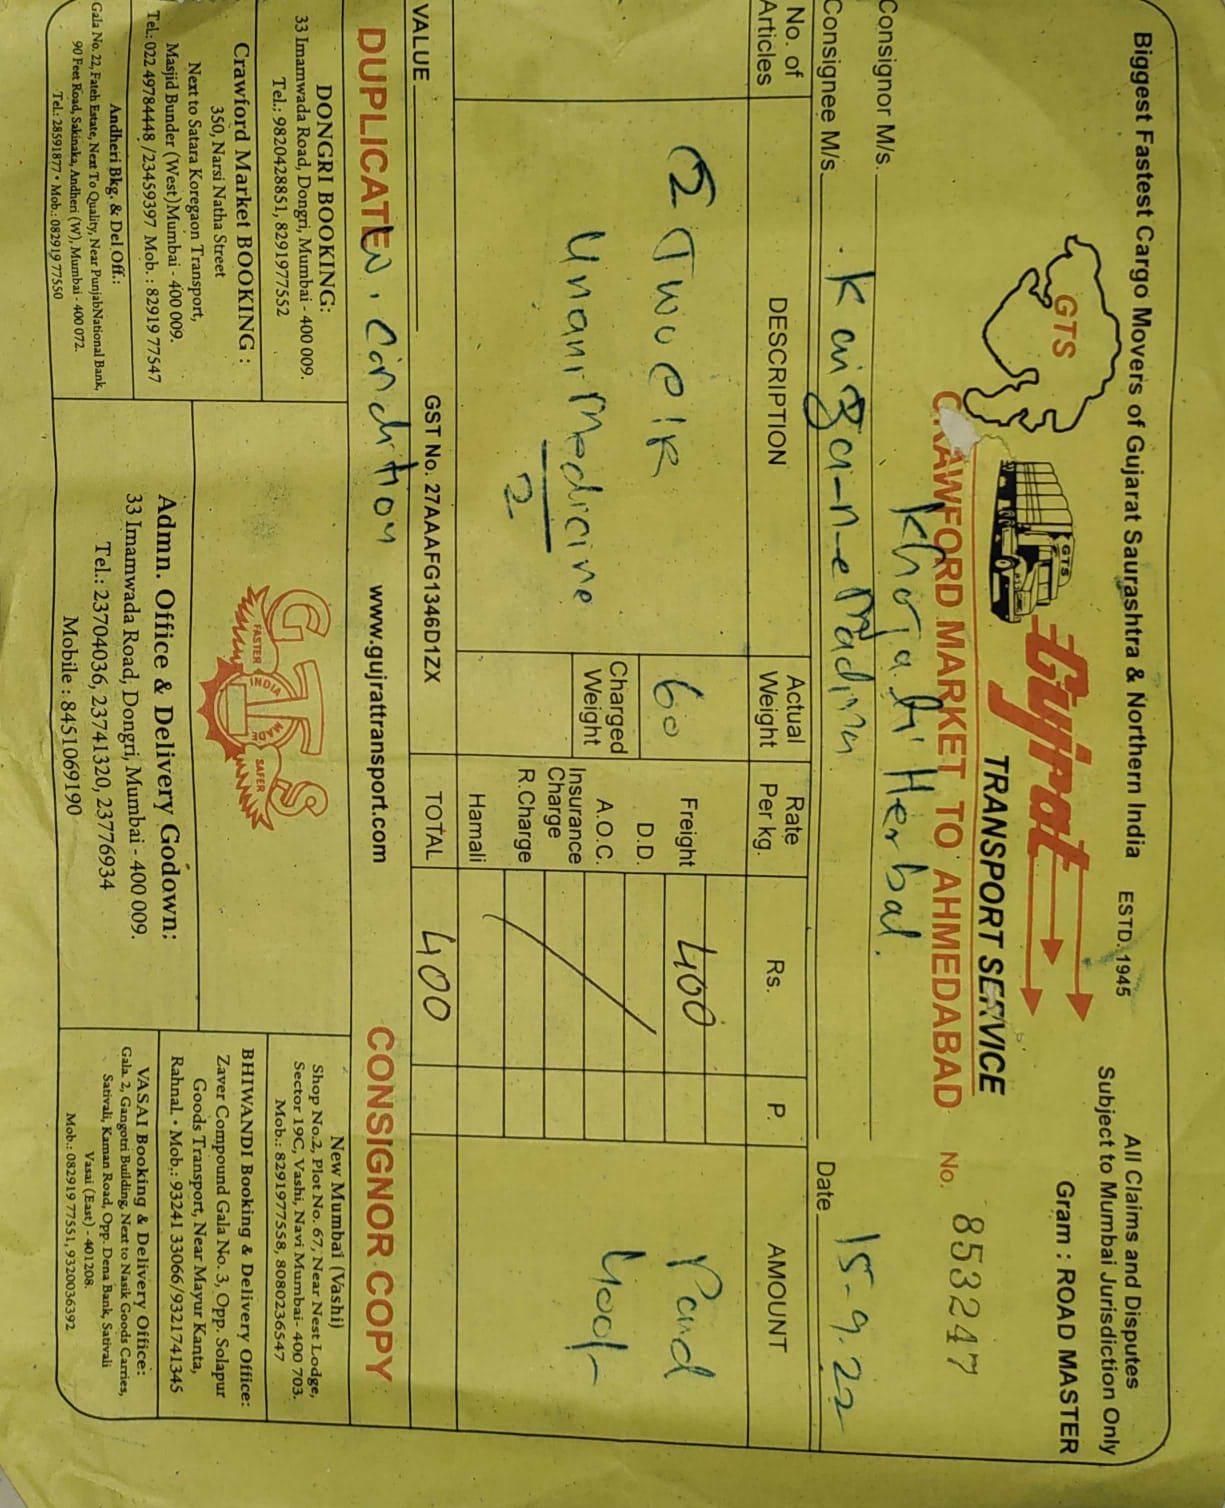 Biggest Fastest Cargo Movers of Gujarat Saurashtra & Northern India ESTD. 1945
All Claims and Disputes
Subject to Mumbai Jurisdiction Only
Gram : ROAD MASTER
GTS
GTS
Gujrat
TRANSPORT SERVICE
CRAWFORD MARKET TO AHMEDABAD No. 853247
Consignor M/s. Khojati Herbal.
Consignee M/s. Date 15-9.22
No. of Articles DESCRIPTION Actual Weight Rate Per kg. Rs. P. AMOUNT
2 60 Freight 400 Paid
D.D.
Unani Medicine A.O.C. 400/-
Charged Weight
Insurance Charge
2 R.Charge
Hamali
VALUE GST No. 27AAAFG1346D1ZX TOTAL 400
DUPLICATE condition www.gujrattransport.com CONSIGNOR COPY
DONGRI BOOKING:
33 Imamwada Road, Dongri, Mumbai - 400 009.
Tel.: 9820428851, 8291977552
Crawford Market BOOKING :
350, Narsi Natha Street
Next to Satara Koregaon Transport,
Masjid Bunder (West) Mumbai - 400 009.
Tel.: 022 49784448 /23459397 Mob. : 82919 77547
Andheri Bkg. & Del Off.:
Gala No. 22, Fateh Estate, Next To Quality, Near PunjabNational Bank,
90 Feet Road, Sakinaka, Andheri (W), Mumbai - 400 072.
Tel.: 28591877 • Mob.: 082919 77550
GTS
FASTER INDIA SAFER
Admn. Office & Delivery Godown:
33 Imamwada Road, Dongri, Mumbai - 400 009.
Tel.: 23704036, 23741320, 23776934
Mobile : 8451069190
New Mumbai (Vashi)
Shop No.2, Plot No. 67, Near Nest Lodge,
Sector 19C, Vashi, Navi Mumbai- 400 703.
Mob.: 8291977558, 8080236547
BHIWANDI Booking & Delivery Office:
Zaver Compound Gala No. 3, Opp. Solapur
Goods Transport, Near Mayur Kanta,
Rahnal. • Mob.: 93241 33066/9321741345
VASAI Booking & Delivery Office:
Gala. 2, Gangotri Building, Next to Nasik Goods Carries,
Sativali, Kaman Road, Opp. Dena Bank, Sativali
Vasai (East) - 401208.
Mob.: 082919 77551, 9320036392